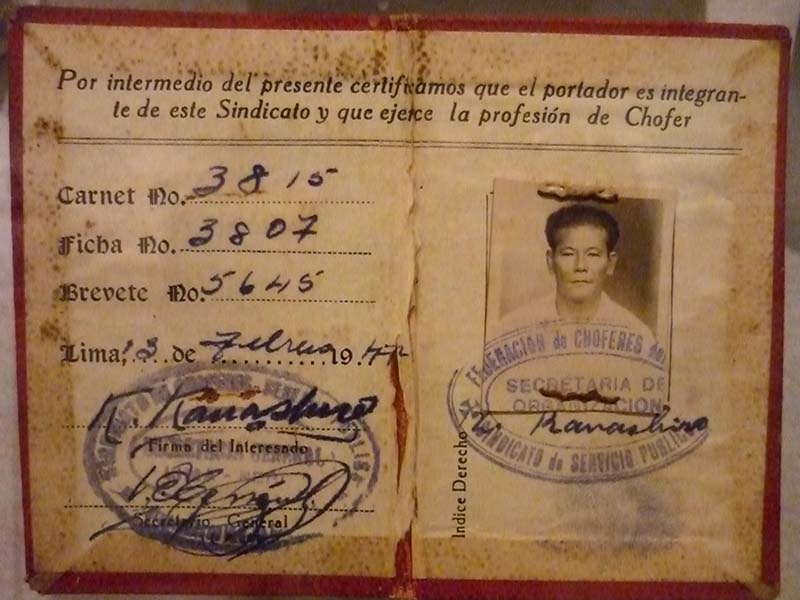 Por intermedio del presente certificamos que el portador es integran-
te de este Sindicato y que ejerce la profesión de Chofer
Carnet No. 3815
Ficha No. 3807
Brevete No. 5645
Lima, 13 de 19
K. Kanashiro
Firma del Interesado
Secretario General
FEDERACION de CHOFERES del
SECRETARIA DE
ORGANIZACION
Kanashiro
SINDICATO de SERVICIO PUBLICO
Indice Derecho